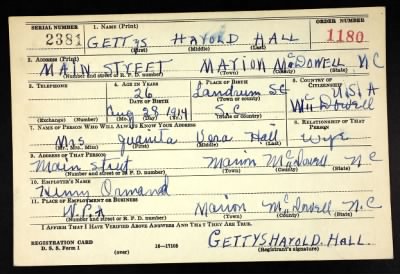 SERIAL NUMBER 1. NAME (Print) ORDER NUMBER
2381 GETTYS HAYOLD HALL 1180
(First) (Middle) (Last)
2. ADDRESS (Print)
MAIN STREET MARION McDOWELL NC
(Number and street or R. F. D. number) (Town) (County) (State)
3. TELEPHONE 4. AGE IN YEARS 5. PLACE OF BIRTH 6. COUNTRY OF CITIZENSHIP
26 Landrum SC U S A
DATE OF BIRTH (Town or county)
Aug 28 1914 S.C. McDowell
(Exchange) (No.) (Mo.) (Day) (Yr.) (State or country)
7. NAME OF PERSON WHO WILL ALWAYS KNOW YOUR ADDRESS 8. RELATIONSHIP OF THAT PERSON
Mrs Juanita Vera Hall Wife
(Mr., Mrs., Miss) (First) (Middle) (Last)
9. ADDRESS OF THAT PERSON
Main Street Marion McDowell N C
(Number and street or R. F. D. number) (Town) (County) (State)
10. EMPLOYER'S NAME
Henry Ormand
11. PLACE OF EMPLOYMENT OR BUSINESS
W.P.A Marion McDowell N.C
(Number and street or R. F. D. number) (Town) (County) (State)
I AFFIRM THAT I HAVE VERIFIED ABOVE ANSWERS AND THAT THEY ARE TRUE.
REGISTRATION CARD GETTYS HAYOLD. HALL.
D. S. S. Form 1 (over) 16—17105 (Registrant's signature)